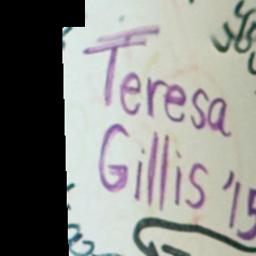 Teresa
Gillis '15